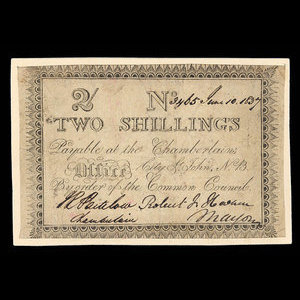 2/ No 3465 June 10. 1837
TWO SHILLINGS
Payable at the Chamberlains
Office City St. John, N.B.
By order of the Common Council.
Robert
Chamberlain Mayor